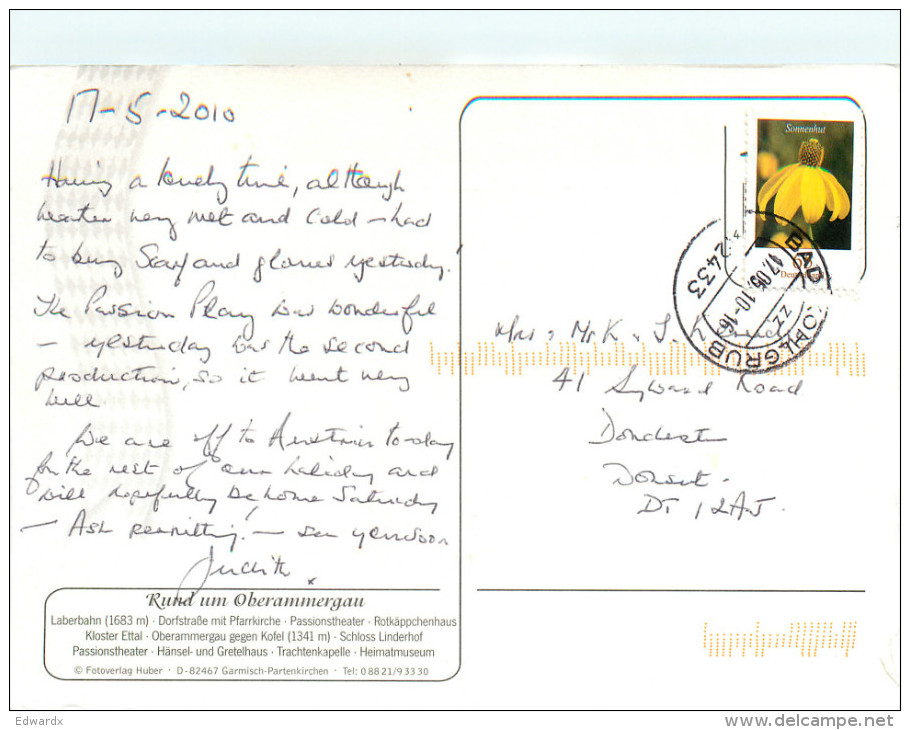 17-5-2010
Having a lovely time, although
weather very wet and cold – had
to buy Scarf and gloves yesterday!
The Passion Play was wonderful
– yesterday was the second
production, so it went very
well.
We are off to Austria to-day
for the rest of our holiday and
will hopefully be home Saturday
– Ash permitting! – see you soon
Judith.
Rund um Oberammergau
Laberbahn (1683 m) · Dorfstraße mit Pfarrkirche · Passionstheater · Rotkäppchenhaus
Kloster Ettal · Oberammergau gegen Kofel (1341 m) · Schloss Linderhof
Passionstheater · Hänsel- und Gretelhaus · Trachtenkapelle · Heimatmuseum
© Fotoverlag Huber · D-82467 Garmisch-Partenkirchen · Tel: 0 88 21/9 33 30
Sonnenhut
BAD KOHLGRUB
82433
17.05.10-16
ZZ
Mrs & Mr K & J.
41 Road
Dorchester
Dorset.
DT1 2AJ.
Edwardx
www.delcampe.net